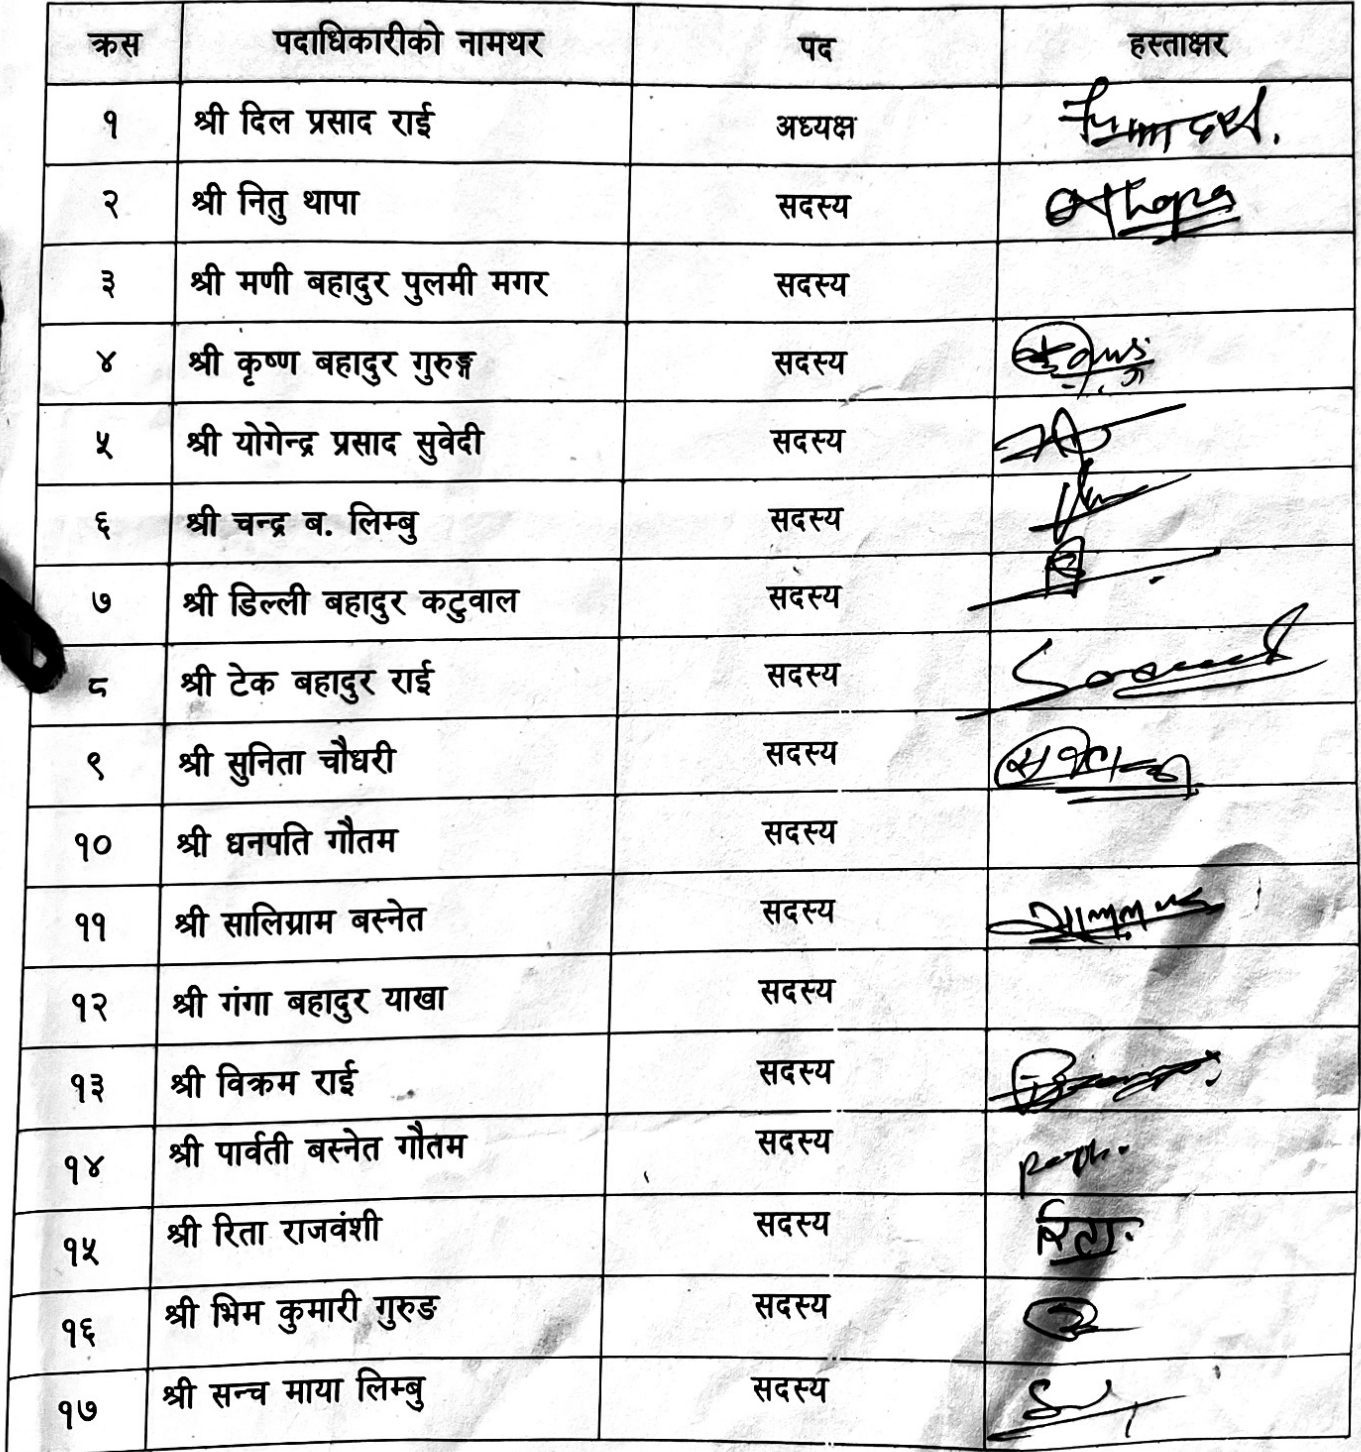 क्रस पदाधिकारीको नामथर पद हस्ताक्षर
१ श्री दिल प्रसाद राई अध्यक्ष
२ श्री नितु थापा सदस्य
३ श्री मणी बहादुर पुलमी मगर सदस्य
४ श्री कृष्ण बहादुर गुरुङ्ग सदस्य
५ श्री योगेन्द्र प्रसाद सुवेदी सदस्य
६ श्री चन्द्र ब. लिम्बु सदस्य
७ श्री डिल्ली बहादुर कटुवाल सदस्य
८ श्री टेक बहादुर राई सदस्य
९ श्री सुनिता चौधरी सदस्य
१० श्री धनपति गौतम सदस्य
११ श्री सालिग्राम बस्नेत सदस्य
१२ श्री गंगा बहादुर याखा सदस्य
१३ श्री विक्रम राई सदस्य
१४ श्री पार्वती बस्नेत गौतम सदस्य
१५ श्री रिता राजवंशी सदस्य रिता
१६ श्री भिम कुमारी गुरुङ सदस्य
१७ श्री सन्च माया लिम्बु सदस्य